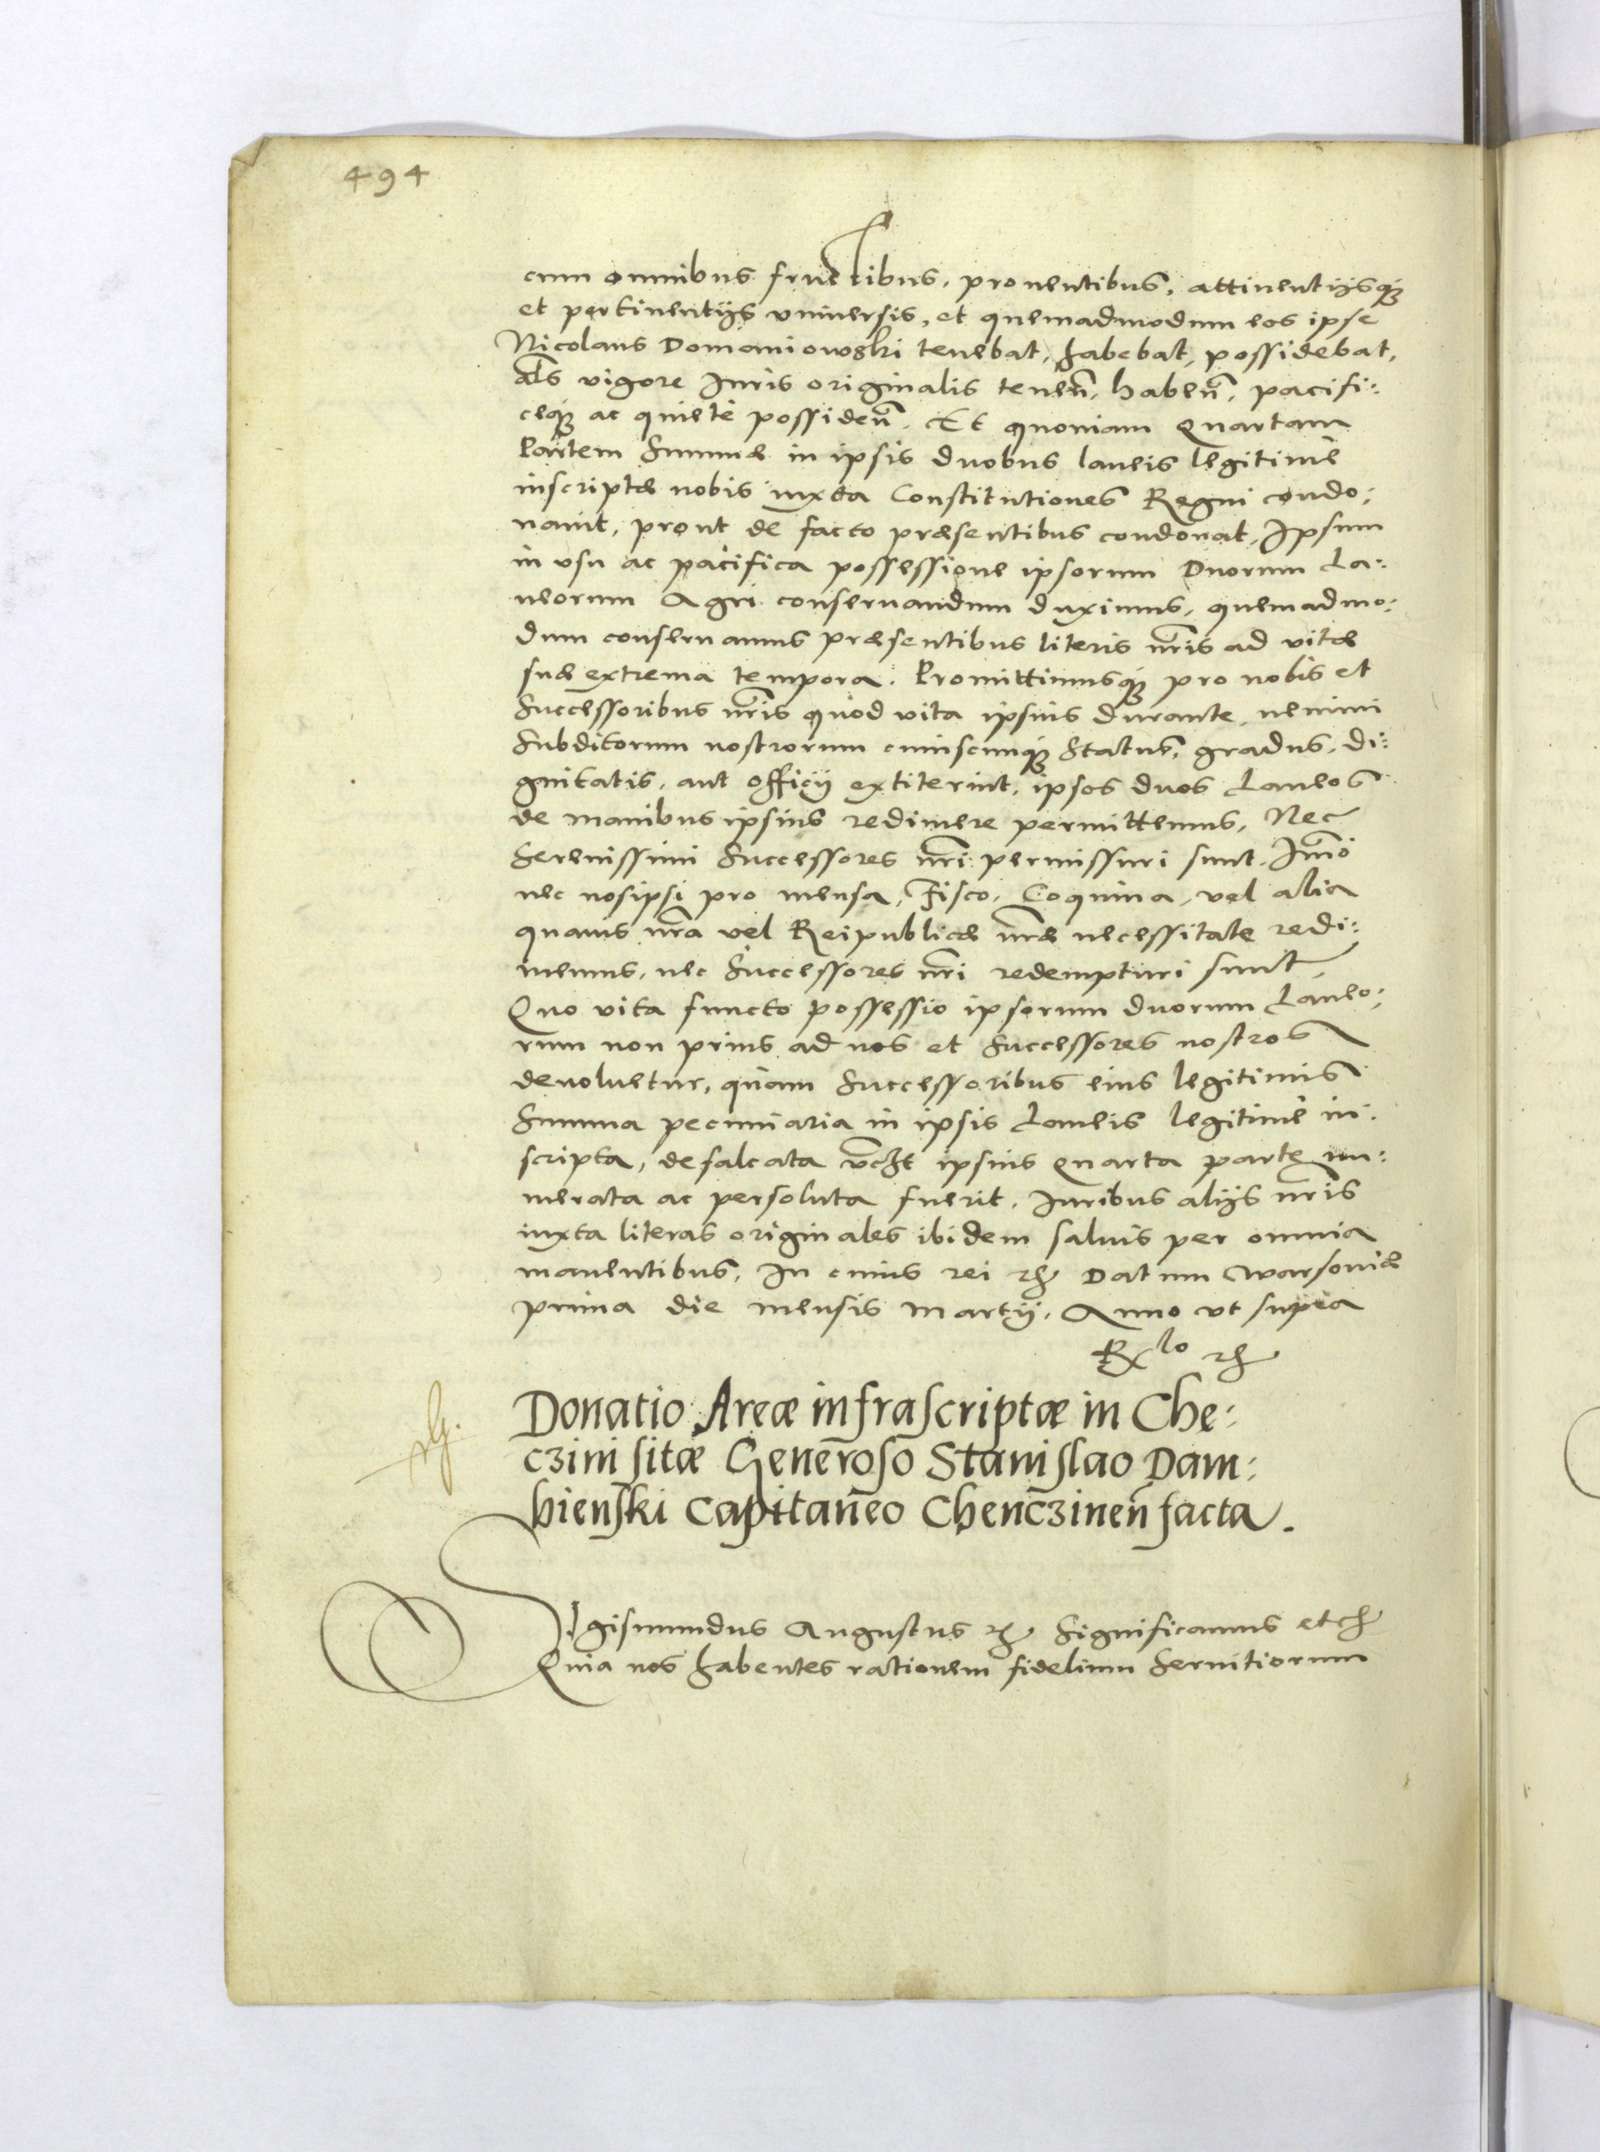 494
cum omnibus fructibus, prouentibus, attinentijsq3
et pertinentijs vniuersis, et quemadmodum eos ipse
Nicolaus Domaniowski tenebat, habebat, possidebat,
als vigore Juris originalis tenen̄, haben̄, pacifi:
ceq3 ac quiete possiden̄. Et quoniam Quartam
Partem Summæ in ipsis duobus laneis legitime
inscriptæ nobis iuxta Constitutiones Regni condo:
nauit, prout de facto præsentibus condonat, Ipsum
in vsu ac pacifica possessione ipsorum Duorum La:
neorum Agri conseruandum duximus, quemadmo:
dum conseruamus præsentibus literis nr̄is ad vitæ
suæ extrema tempora. Promittimusq3 pro nobis et
Successoribus nr̄is quod vita ipsius durante, nemini
Subditorum nostrorum cuiuscumq3 Status, gradus, di:
gnitatis, aut officij extiterint, ipsos duos Laneos
de manibus ipsius redimere permittemus, Nec
Serenissimi Successores nr̄i permissuri sunt. Im̄o
nec nosipsi pro mensa, Fisco, Coquina, vel alia
quauis nr̄a vel Reipublicæ nr̄æ necessitate redi:
memus, nec Successores nr̄i redempturi sunt,
Quo vita functo possessio ipsorum duorum Laneo:
rum non prius ad nos et Successores nostros
deuoluetur, quam Successoribus eius legitimis
Summa pecuniaria in ipsis Laneis legitime in:
scripta, defalcata ipsius Quarta parte nu:
merata ac persoluta fuerit. Juribus alijs nr̄is
iuxta literas originales ibidem saluis per omnia
manentibus. In cuius rei etc Datum Warsouiæ
prima die mensis Martij. Anno vt supra
Rlo etc
Donatio Areæ infrascriptæ in Che:
czini sitæ Generoso Stanislao Dam:
bienski Capitaneo Chenczinen̄ facta.
Sigismundus Augustus etc Significamus etc
Quia nos habentes rationem fidelium Seruitiorum